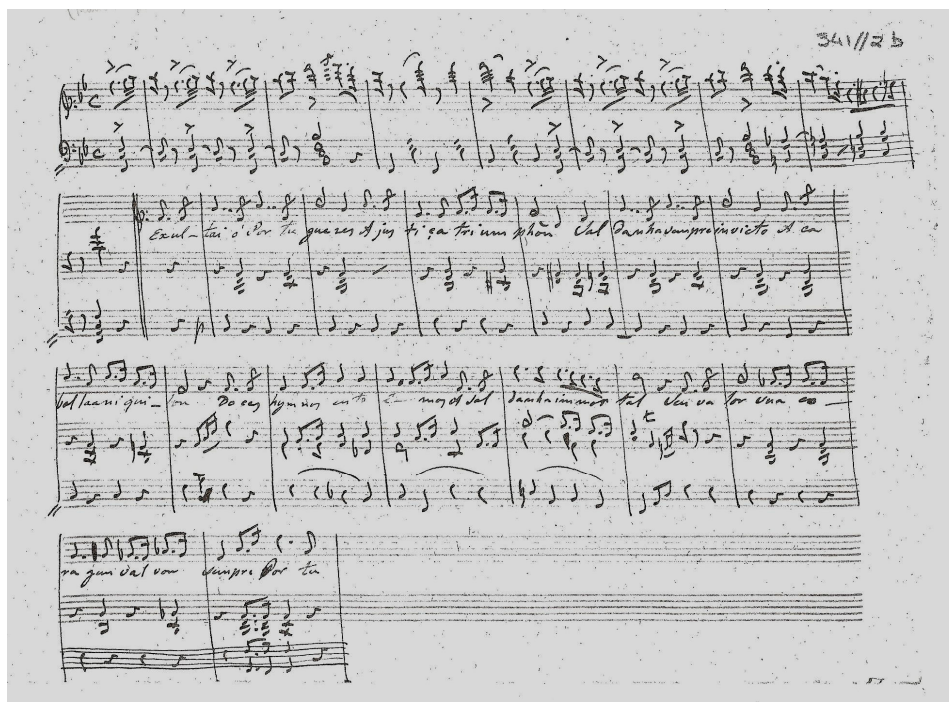 341//2 b
Exul-tai ó Por tu guezes A jus ti ça trium phou Sal danha sempre invicto A ca
bal la ani qui- lou Do ces hymnos ento e- mos a Sal danha immor tal Seu va lor sua co-
ra gem Sal vou sempre Por tu